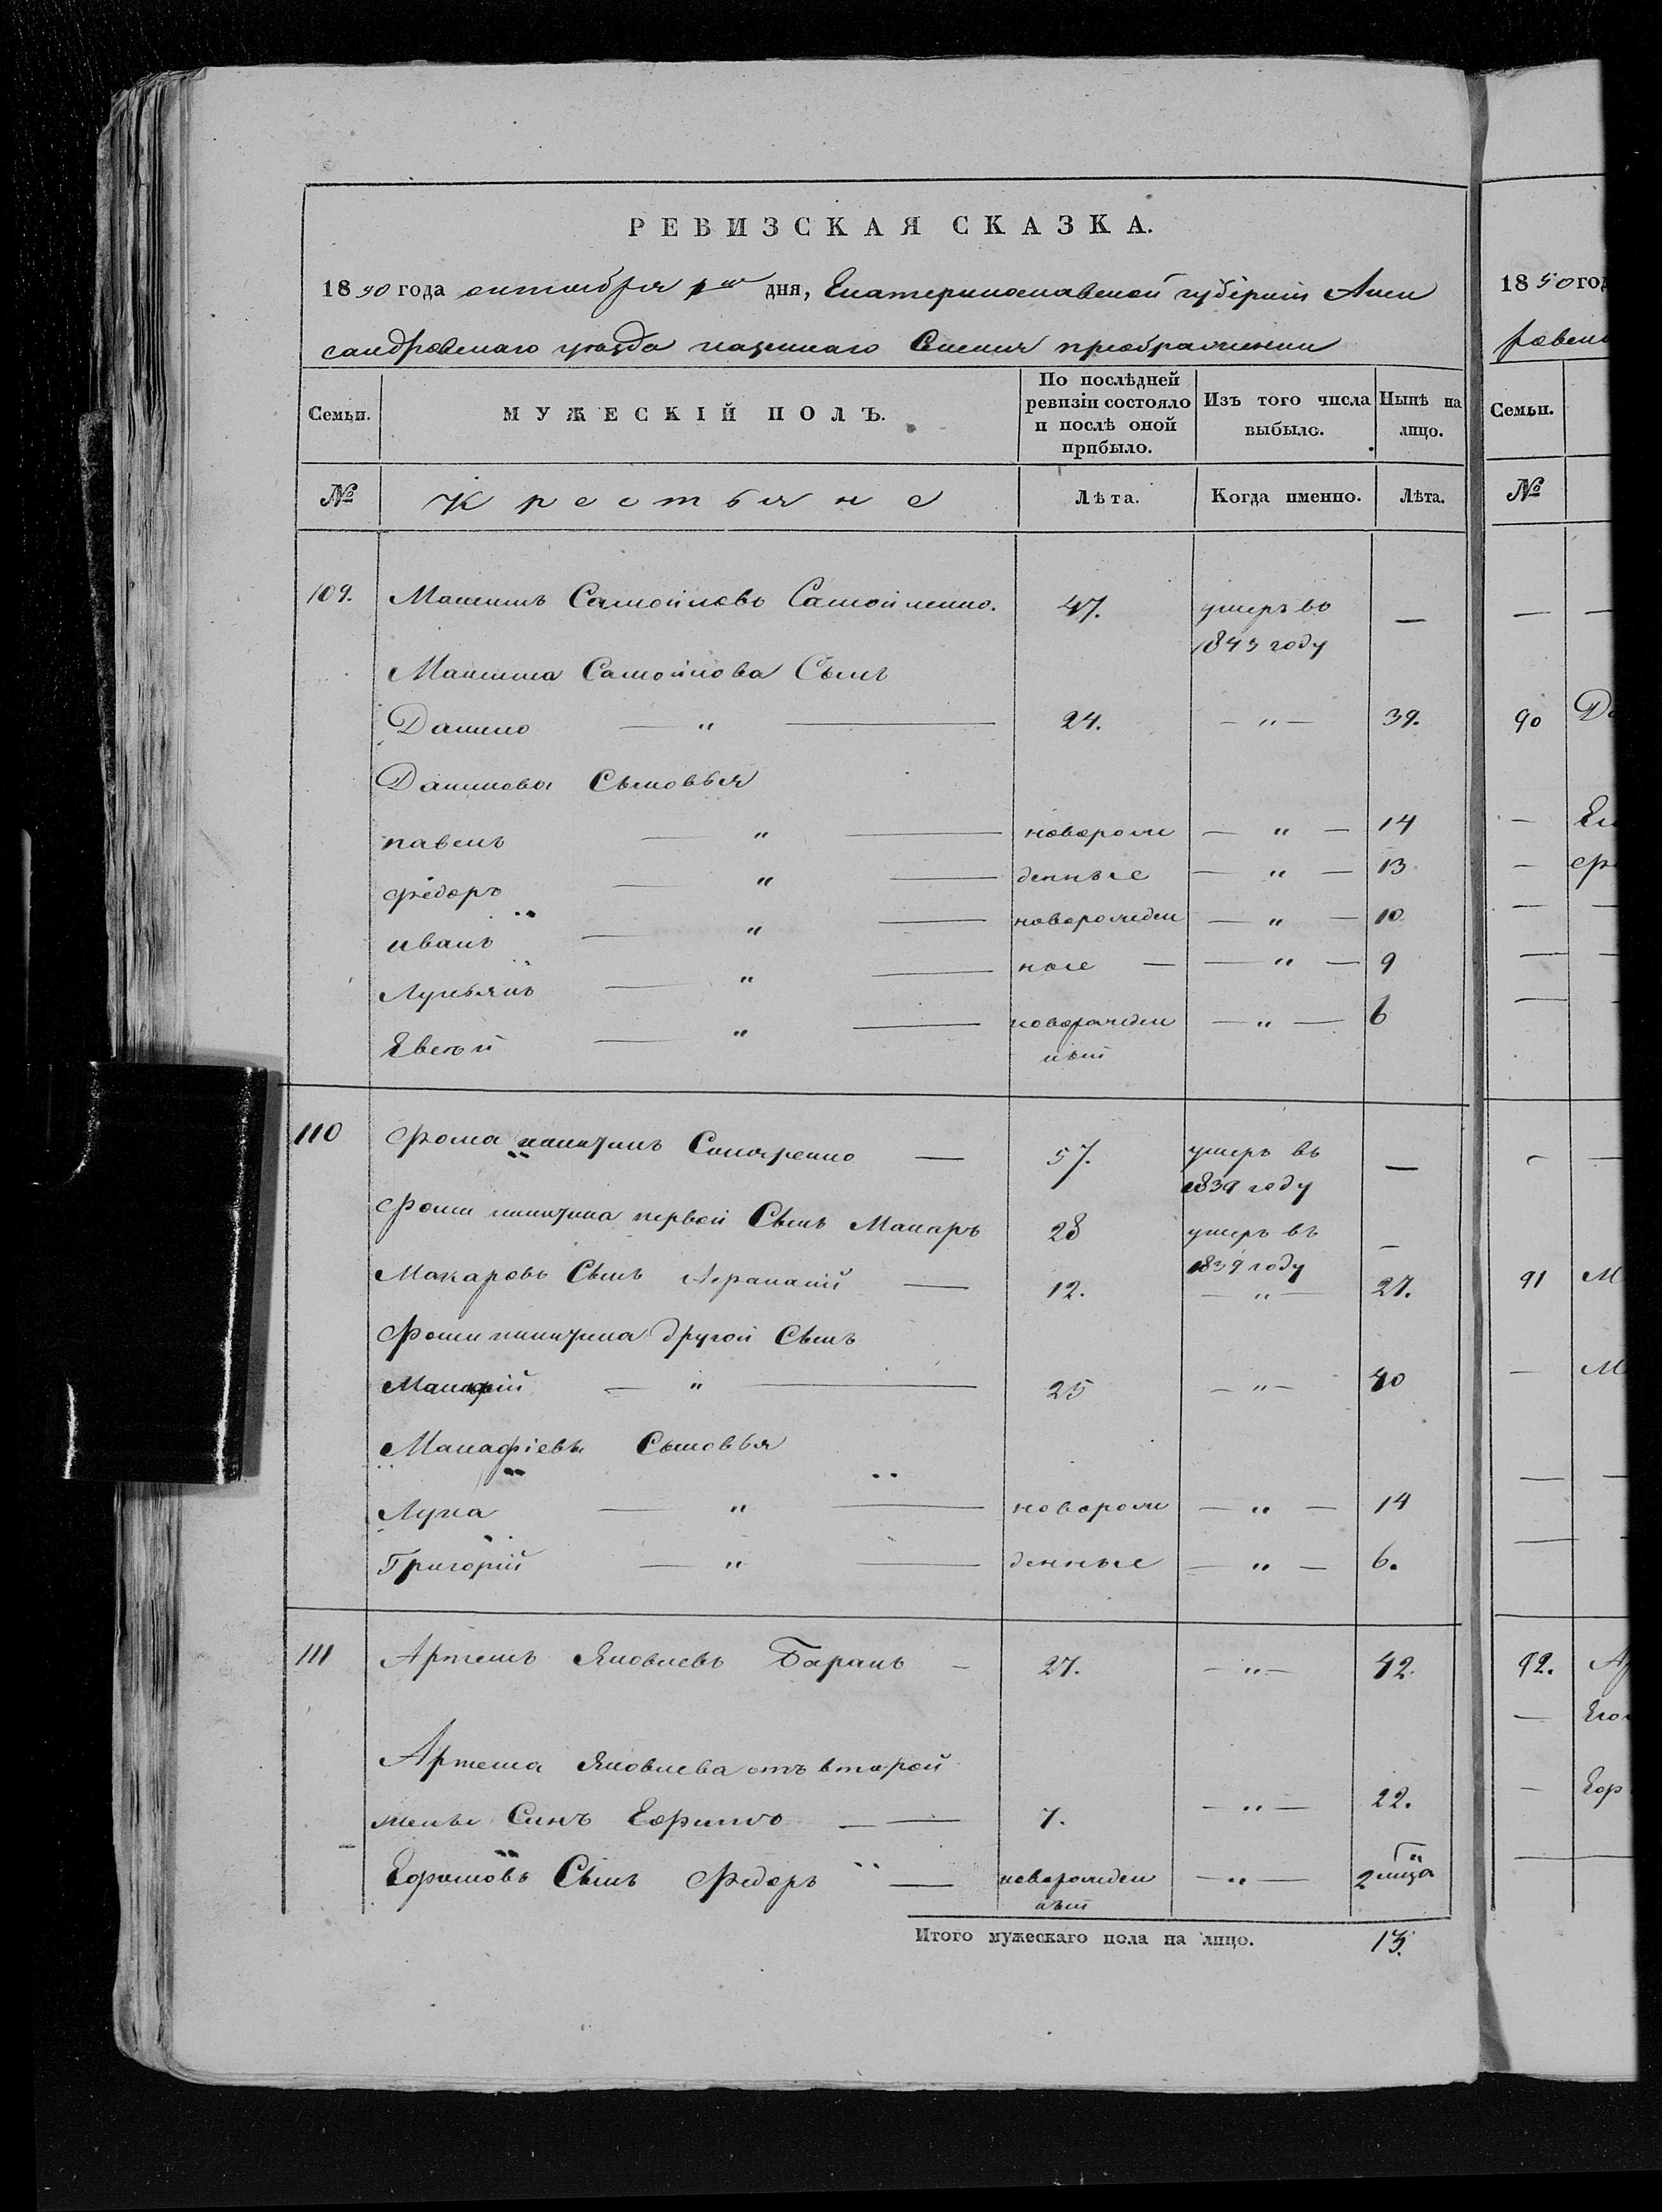 РЕВИЗСКАЯ СКАЗКА.
1850 года октября 1го дня, Екатеринославской губерніи Алек
сандровскаго уѣзда казеннаго Селенія преображенки
Семьи.
МУЖЕСКІЙ ПОЛЪ.
По послѣдней ревизіи состояло и послѣ оной прибыло.
Изъ того числа выбыло.
Нынѣ на лицо.
№ Крестьяне Лѣта. Когда именно. Лѣта.
109. Максимъ Самойловъ Самойленко. 47. умеръ въ —
1843 году
Максима Самойлова Сынъ
Данило — " — 24. — " — 39.
Данилова Сыновья
павелъ — " — новорож — " — 14
федоръ — " — денные — " — 13
иванъ — " — новорожден — " — 10
Лукьянъ — " — ные — — " — 9
Евсѣй — " — новорожден — " — 6
ный
110 Фома никитинъ Сокоренко — 57. умеръ въ —
1839 году
Фомы никитина первой Сынъ Макаръ 28 умеръ въ —
1839 году
Макаровъ Сынъ — 12. — " — 27.
Фомы никитина другой Сынъ
— " — 25 — " — 40
Сыновья
Лука — " — новорож — " — 14
Григорій — " — денные — " — 6.
111 Артемъ Яковлевъ Баранъ — 27. — " — 42.
Артема Яковлева отъ второй
жены Синъ Ефимъ — — 7. — " — 22.
Ефимовъ Сынъ Федоръ — новорожден — " — 2
ный
Итого мужескаго пола на лицо. 13.
1850 год
ровск
Семьи.
№
—
90 Да
— Ел
—
—
—
—
—
91 М
— М
—
—
92. А
— Его
— Еф
—